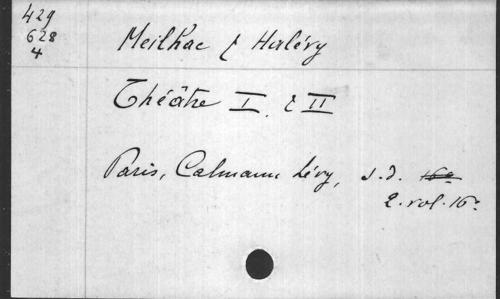 429
628
4
Meilhac & Halévy
Théâtre I. & II
Paris, Calmann Lévy, s.d. 16º
2. vol. 16º